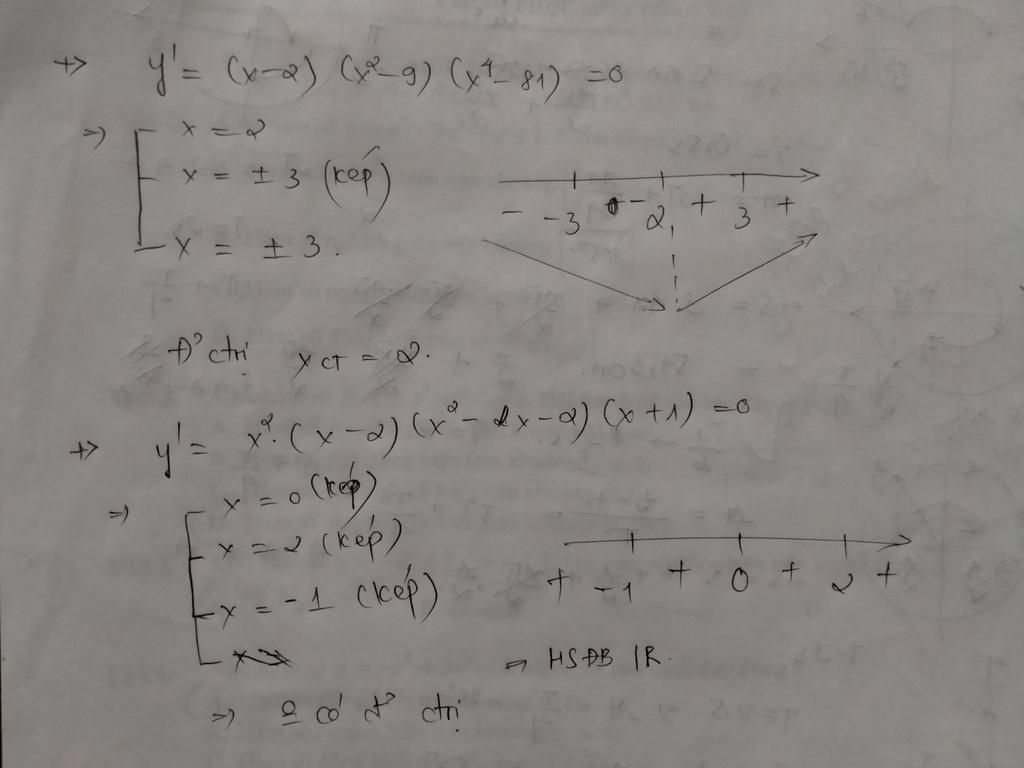 +> y' = (x-2) (x²-9) (x⁴-81) = 0
=> x = 2
x = ± 3 (kép)
x = ± 3.
- -3 - 2 + 3 +
Đ' ctrị x CT = 2.
+> y' = x². (x-2) (x² - x - 2) (x+1) = 0
=> x = 0 (kép)
x = 2 (kép)
x = -1 (kép)
+ -1 + 0 + 2 +
=> HSĐB IR.
=> có đ' ctrị